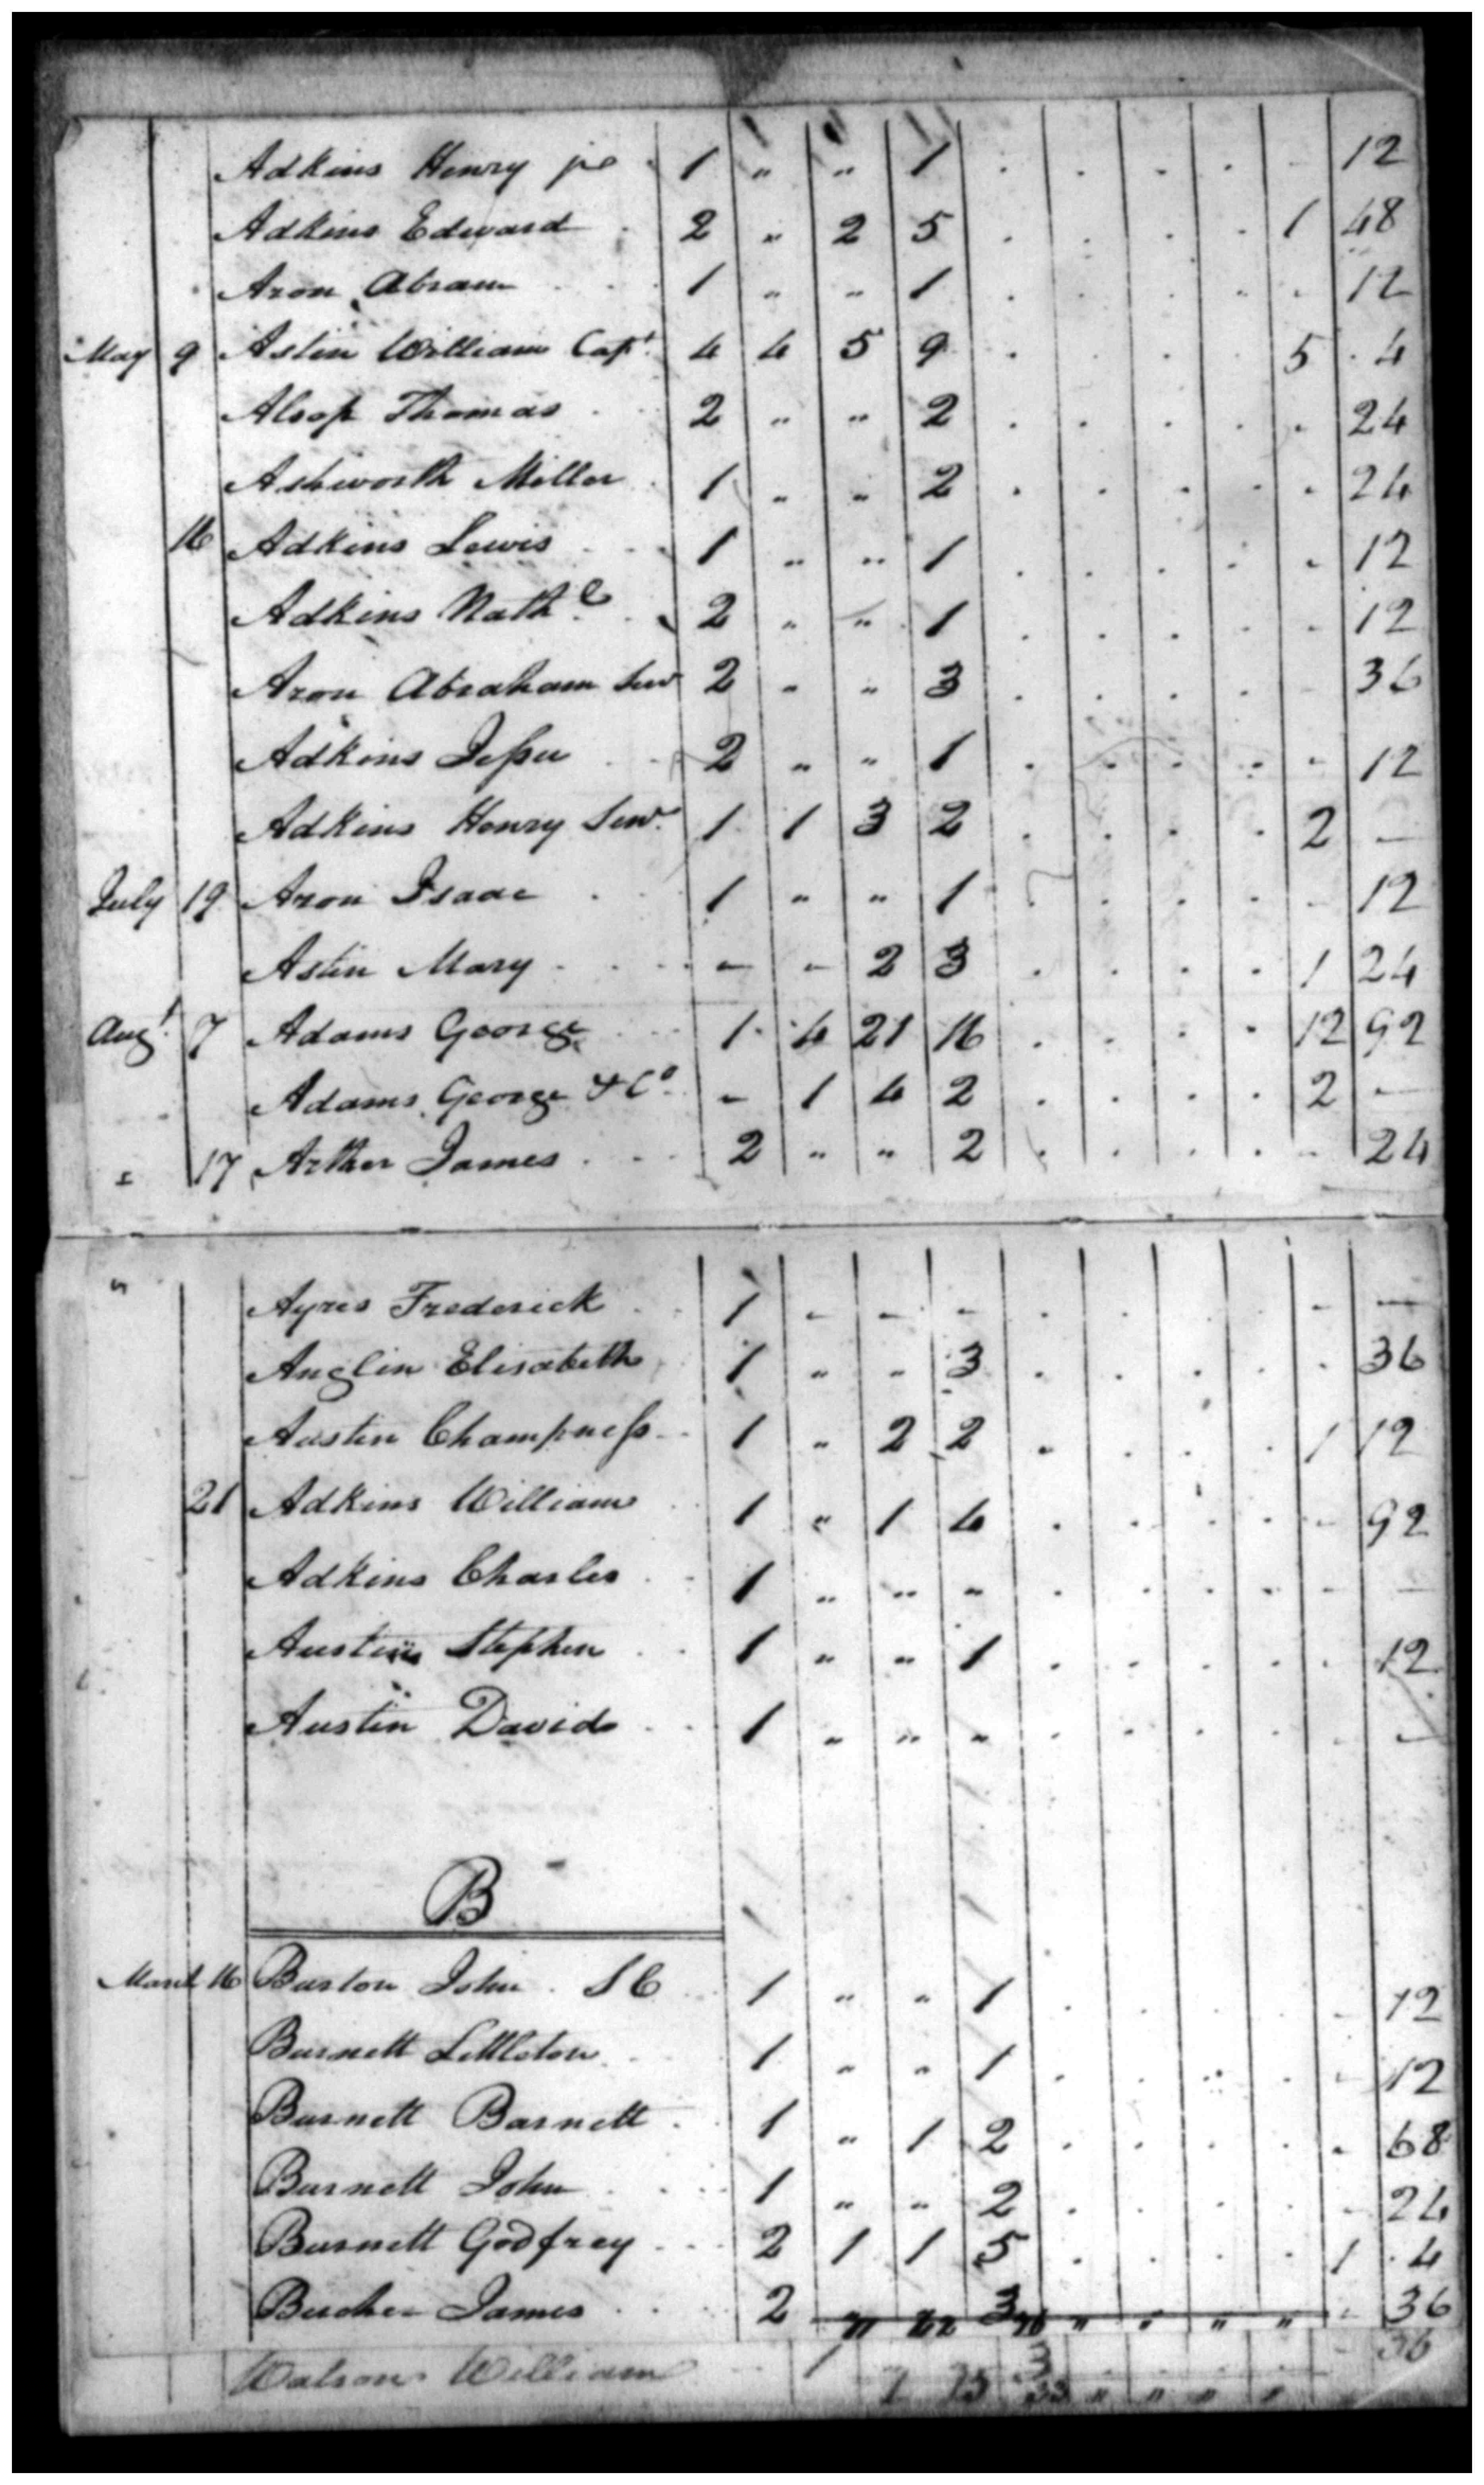 Adkins Henry jr 1 " " 1 . . . . - 12
Adkins Edward 2 " 2 5 . . . . 1 48
Aron Abram 1 " " 1 . . . . . 12
May 9 Astin William Capt. 4 4 5 9 . . . . 5 . 4
Alsop Thomas 2 " " 2 . . . . . 24
Ashworth Miller 1 " " 2 . . . . . 24
16 Adkins Lewis 1 " " 1 . . . . . 12
Adkins Nathl. 2 " " 1 . . . . . 12
Aron Abraham Senr 2 " " 3 . . . . - 36
Adkins Jesse 2 " " 1 . . . . - 12
Adkins Henry Senr. 1 1 3 2 . . . . 2 —
July 19 Aron Isaac 1 " " 1 . . . . . 12
Astin Mary - - 2 3 . . . . 1 24
Augt. 7 Adams George 1 4 21 16 . . . . 12 92
Adams George & Co. - 1 4 2 . . . . 2 —
" 17 Arther James 2 " " 2 . . . . - 24
" Ayres Frederick 1 - - - . . . . - —
Anglin Elisabeth 1 " " 3 . . . . . 36
Austin Champness 1 " 2 2 . . . . 1 12
21 Adkins William 1 " 1 4 . . . . - 92
Adkins Charles 1 " " " . . . . - —
Austin Stephen 1 " " 1 . . . . . 12
Austin David 1 " " " . . . . . —
B
March 16 Burton John . S C 1 " " 1 . . . . - 12
Burnett Littleton 1 " " 1 . . . . - 12
Burnett Barnett 1 " 1 2 . . . . . 68
Burnett John 1 " " 2 . . . . - 24
Burnett Godfrey 2 1 1 5 . . . . 1 . 4
James 2 3 - 36
Watson William 1 3 36